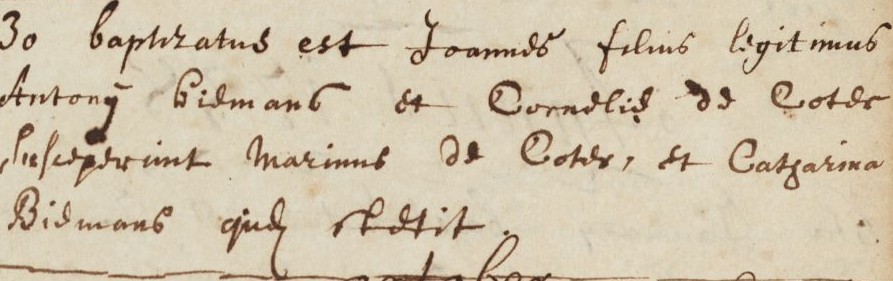 30 baptizatus est Joannes filius legitimus
Antonÿ Biemans et Cornelie de Coter
susceperunt Marinus de Coter, et Catharina
Biemans quæ stetit.
october